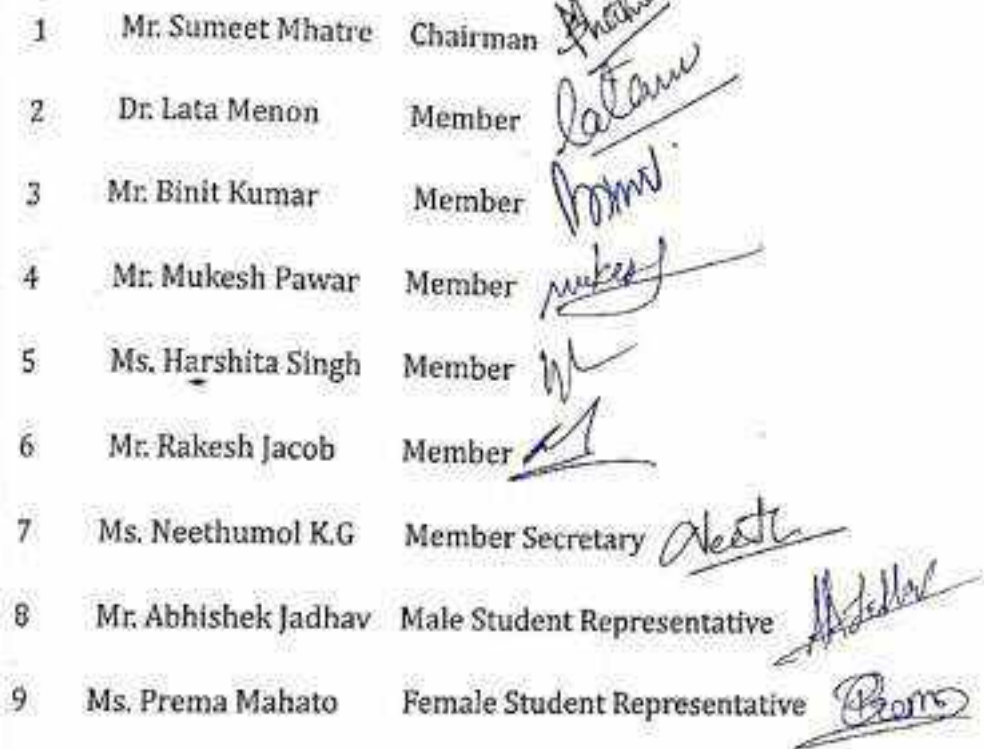 1 Mr. Sumeet Mhatre Chairman
2 Dr. Lata Menon Member
3 Mr. Binit Kumar Member
4 Mr. Mukesh Pawar Member
5 Ms. Harshita Singh Member
6 Mr. Rakesh Jacob Member
7 Ms. Neethumol K.G Member Secretary
8 Mr. Abhishek Jadhav Male Student Representative
9 Ms. Prema Mahato Female Student Representative